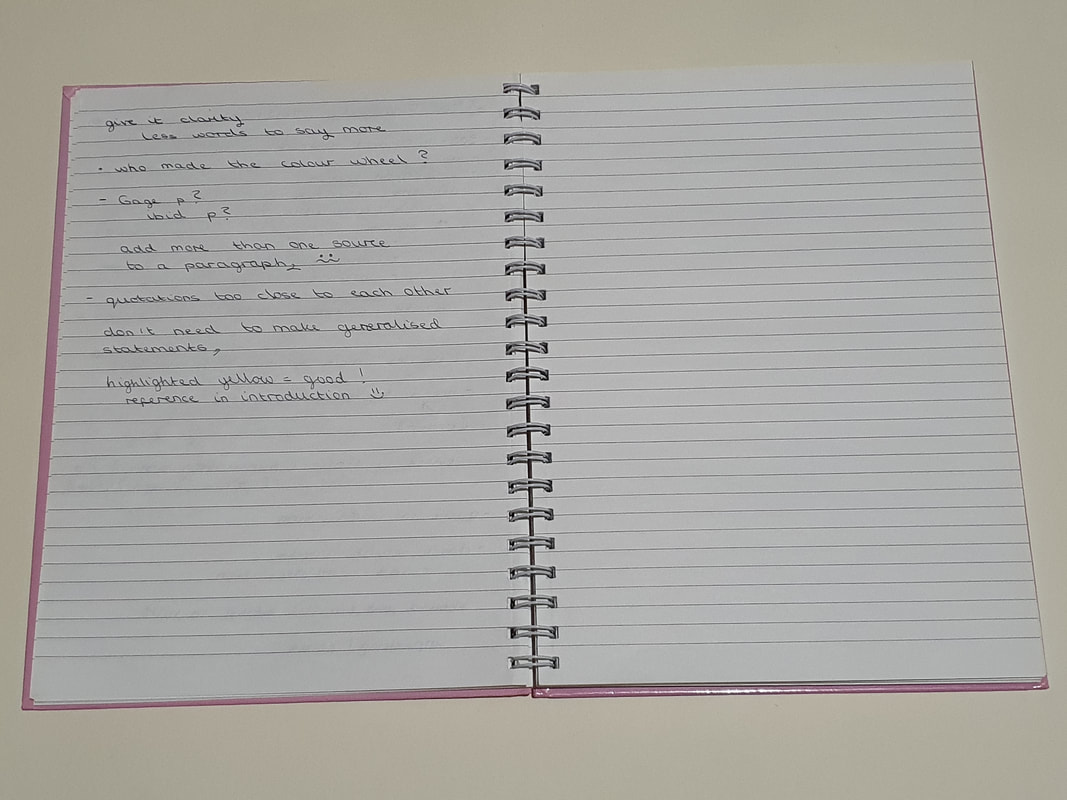 give it clarity
less words to say more
· who made the colour wheel ?
- Gage p?
ibid p?
add more than one source
to a paragraph, :)
- quotations too close to each other
don't need to make generalised
statements,
highlighted yellow = good !
reference in introduction :)